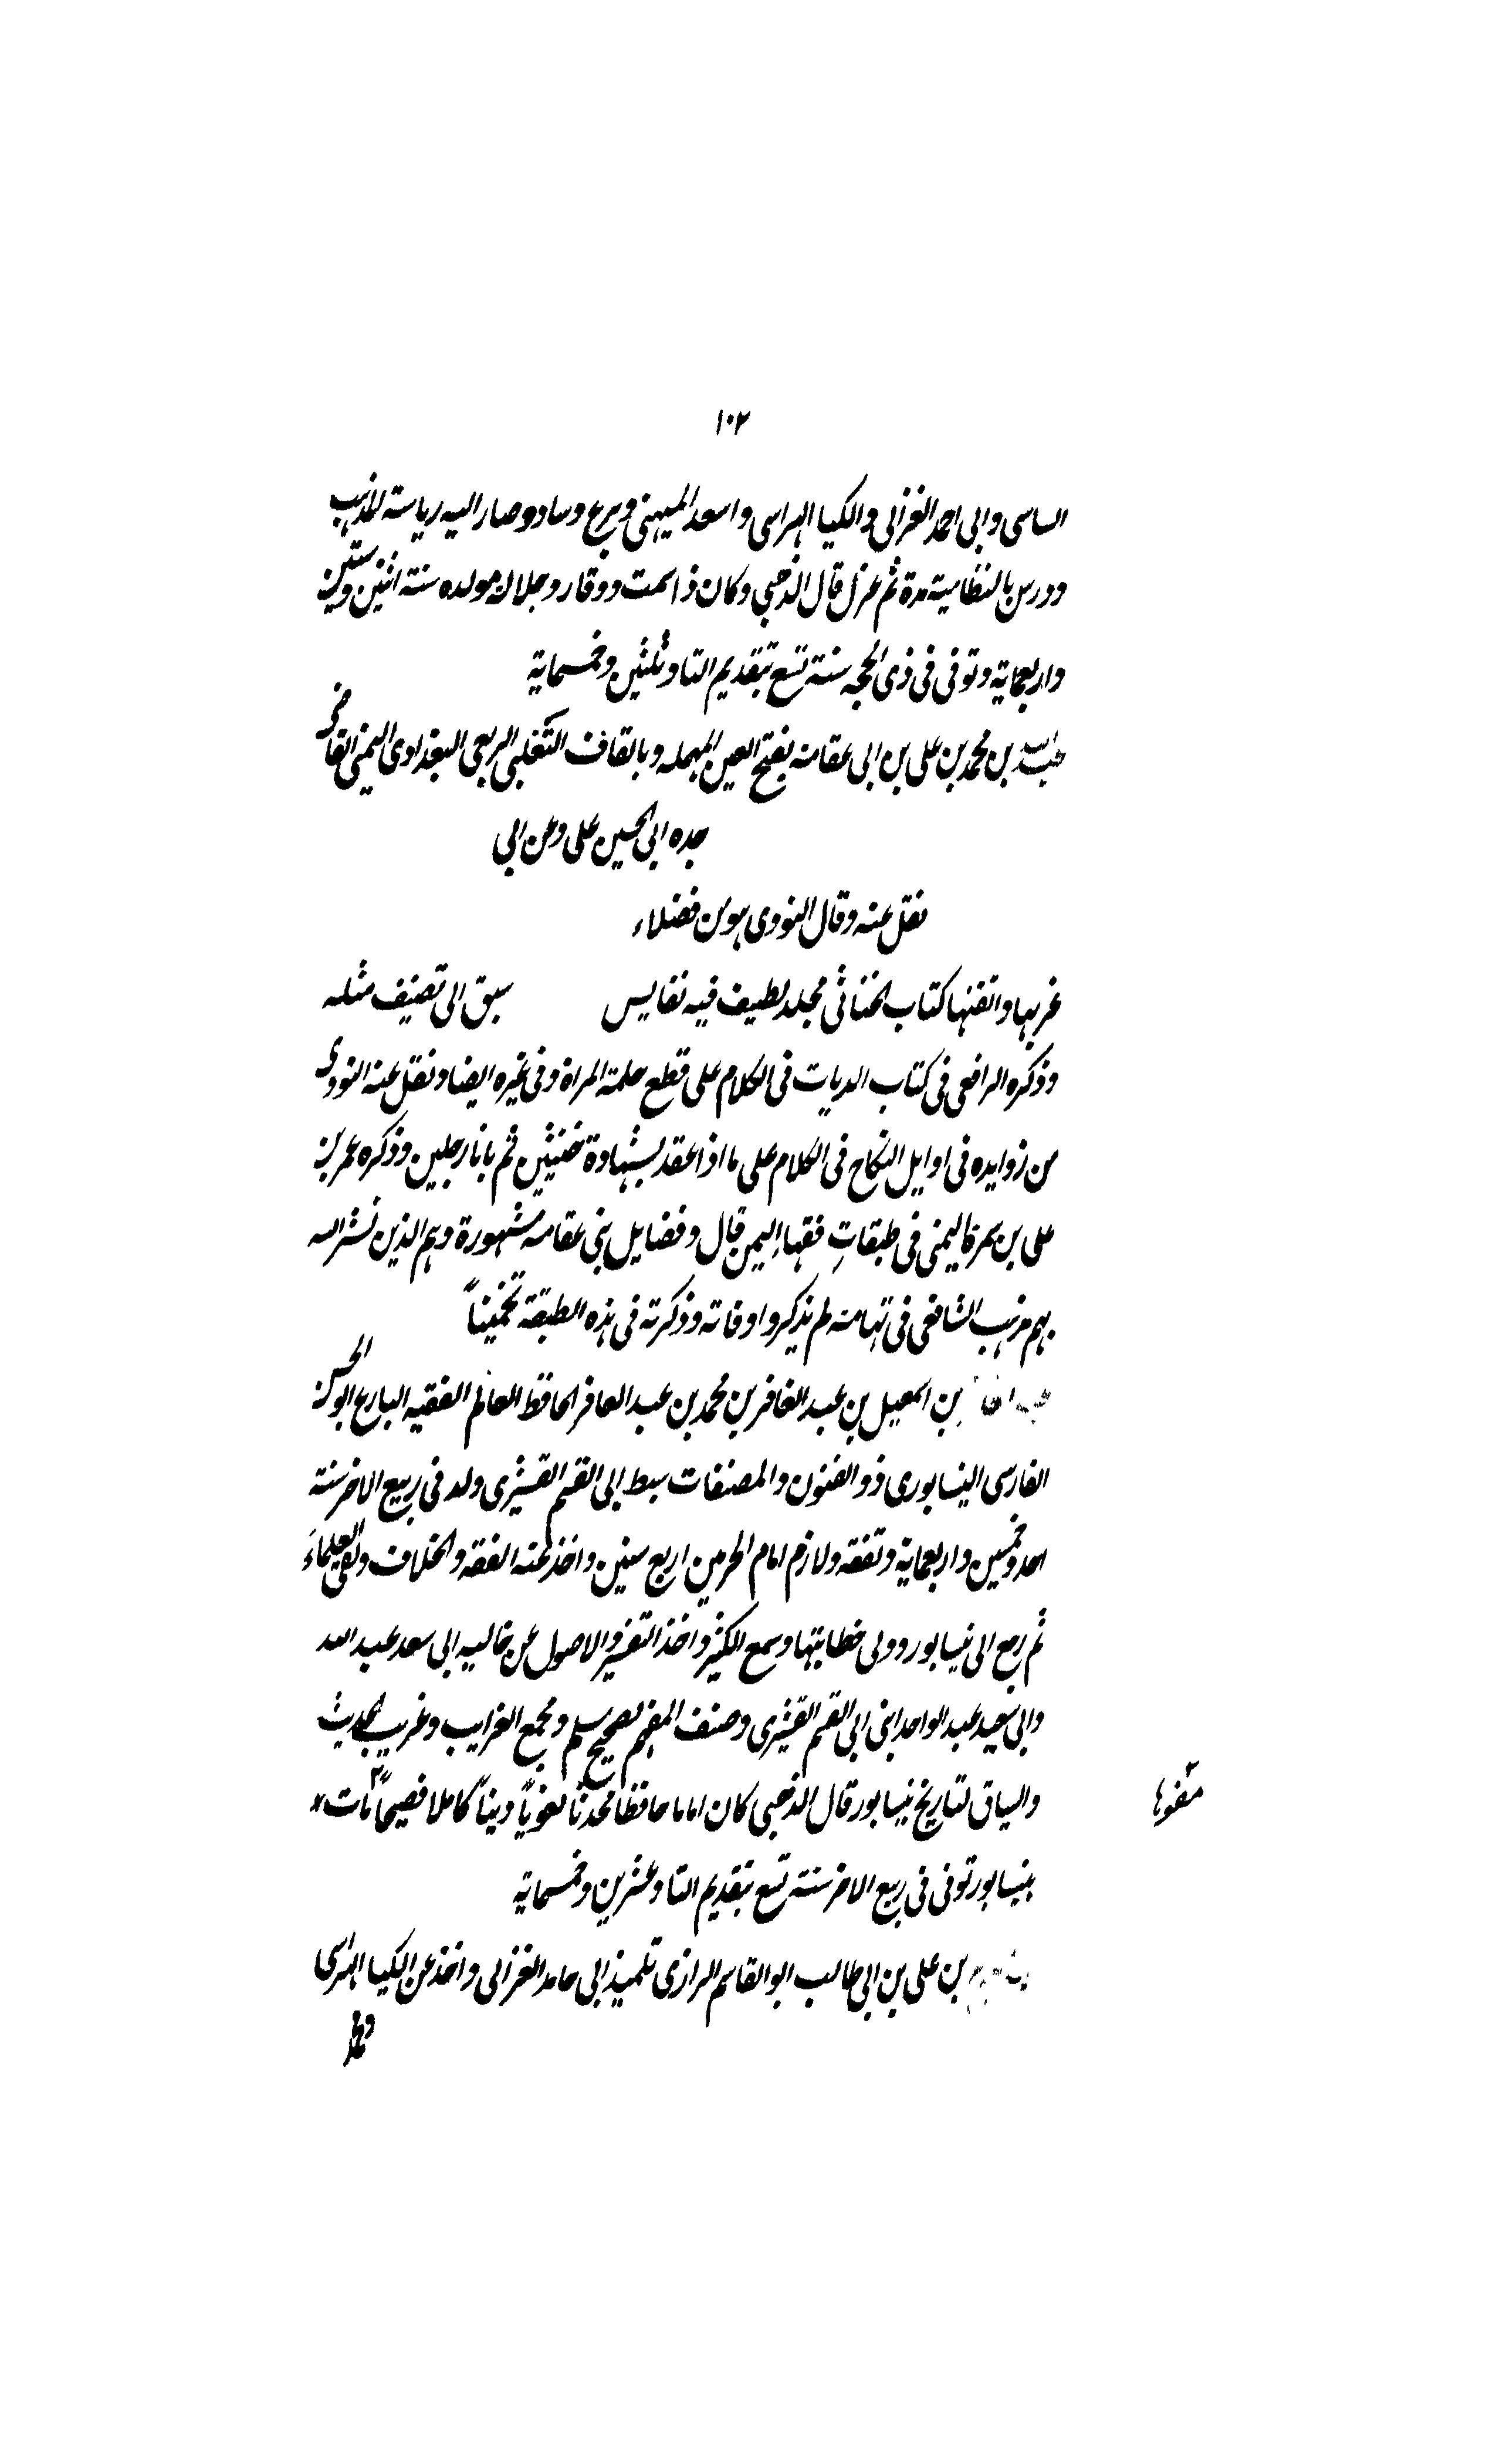 ١٠٢
الساسى وابى احمد الغزالى والكيا الهراسى واسعد الميهنى وبرع وساد وصار اليه رياسة المذهب
ودرس بالنظامية مدة ثم عزل قال الذهبى وكان ذا سمت ووقار وجلالة مولده سنة اثنين وستين
واربعماية وتوفى فى ذى الحجه سنة تسع بتقديم التا وثلثين وخمسماية
عبد الله بن محمد بن على بن ابى عقامه بفتح العين المهمله وبالقاف التغلبى الربعى البغدادى اليمنى القاضى
جده ابى الحسين على وعن ابى
نقل عنه وقال النووى هو من فضلاء
غريبها واتقنها كتاب الخناثى مجلد لطيف فيه نفايس سبق الى تصنيف مثله
وذكره الرافعى فى كتاب الديات فى الكلام على قطع حلمة المراة وفى غيره ايضا ونقل عنه النووى
من زوايده فى اوايل النكاح فى الكلام على ما اذا عقد بشهادة خنثيين ثم بانا رجلين وذكره عمر بن
على بن سمرة اليمنى فى طبقات فقهاء اليمن قال وفضايل بنى عقامه مشهورة وهم الذين نشر الله
بهم مذهب الشافعى فى تهامة لم يذكروا وفاته وذكرته فى هذه الطبقة تخمينا
بن اسمعيل بن عبد الغافر بن محمد بن عبد الغافر الحافظ العالم الفقيه البارع ابو الحسن
الفارسى النيسابورى ذو الفنون والمصنفات سبط ابى القسم القشيرى ولد فى ربيع الاخر سنة
احد وخمسين واربعماية وتفقه ولازم امام الحرمين اربع سنين واخذ عنه الفقه والخلاف ولقى العلماء
ثم رجع الى نيسابور وولى خطابتها وسمع الكثير واخذ التفسير والاصول عن خاليه ابى سعد عبد الله
وابى سعيد عبد الواحد ابنى ابى القسم القشيرى وصنف المفهم لصحيح مسلم ومجمع الغرايب وغريب الحديث
والسياق لتاريخ نيسابور قال الذهبى كان اماما حافظا محدثا لغويا دينا كاملا فصيحا مات
مفوها
بنيسابور توفى فى ربيع الاخر سنة تسع بتقديم التا وعشرين وخمسماية
بن على بن ابى طالب ابو القاسم الرازى تلميذ ابى حامد الغزالى واخذ عن الكيا الهراسى